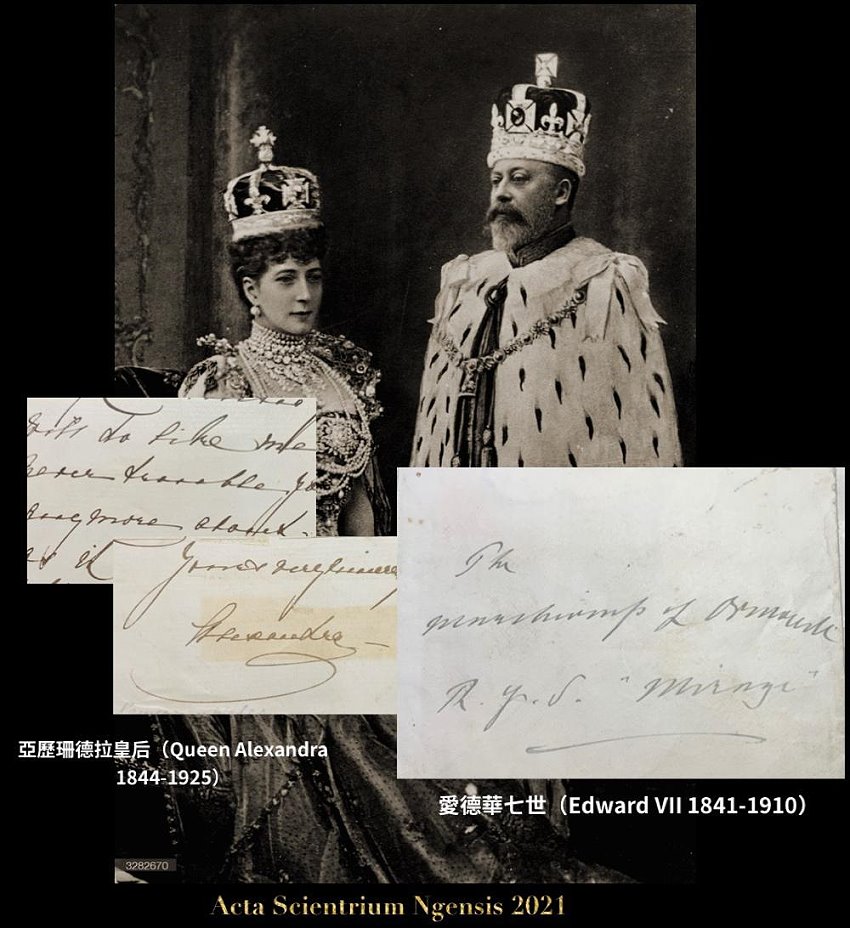 you to like me
never trouble you
any more about
as it
Yours very sincerely
Alexandra
The
Marchioness of Ormonde
R. Y. S. "Mirage"
亞歷珊德拉皇后（Queen Alexandra
1844-1925）
愛德華七世（Edward VII 1841-1910）
3282670
Acta Scientrium Ngensis 2021